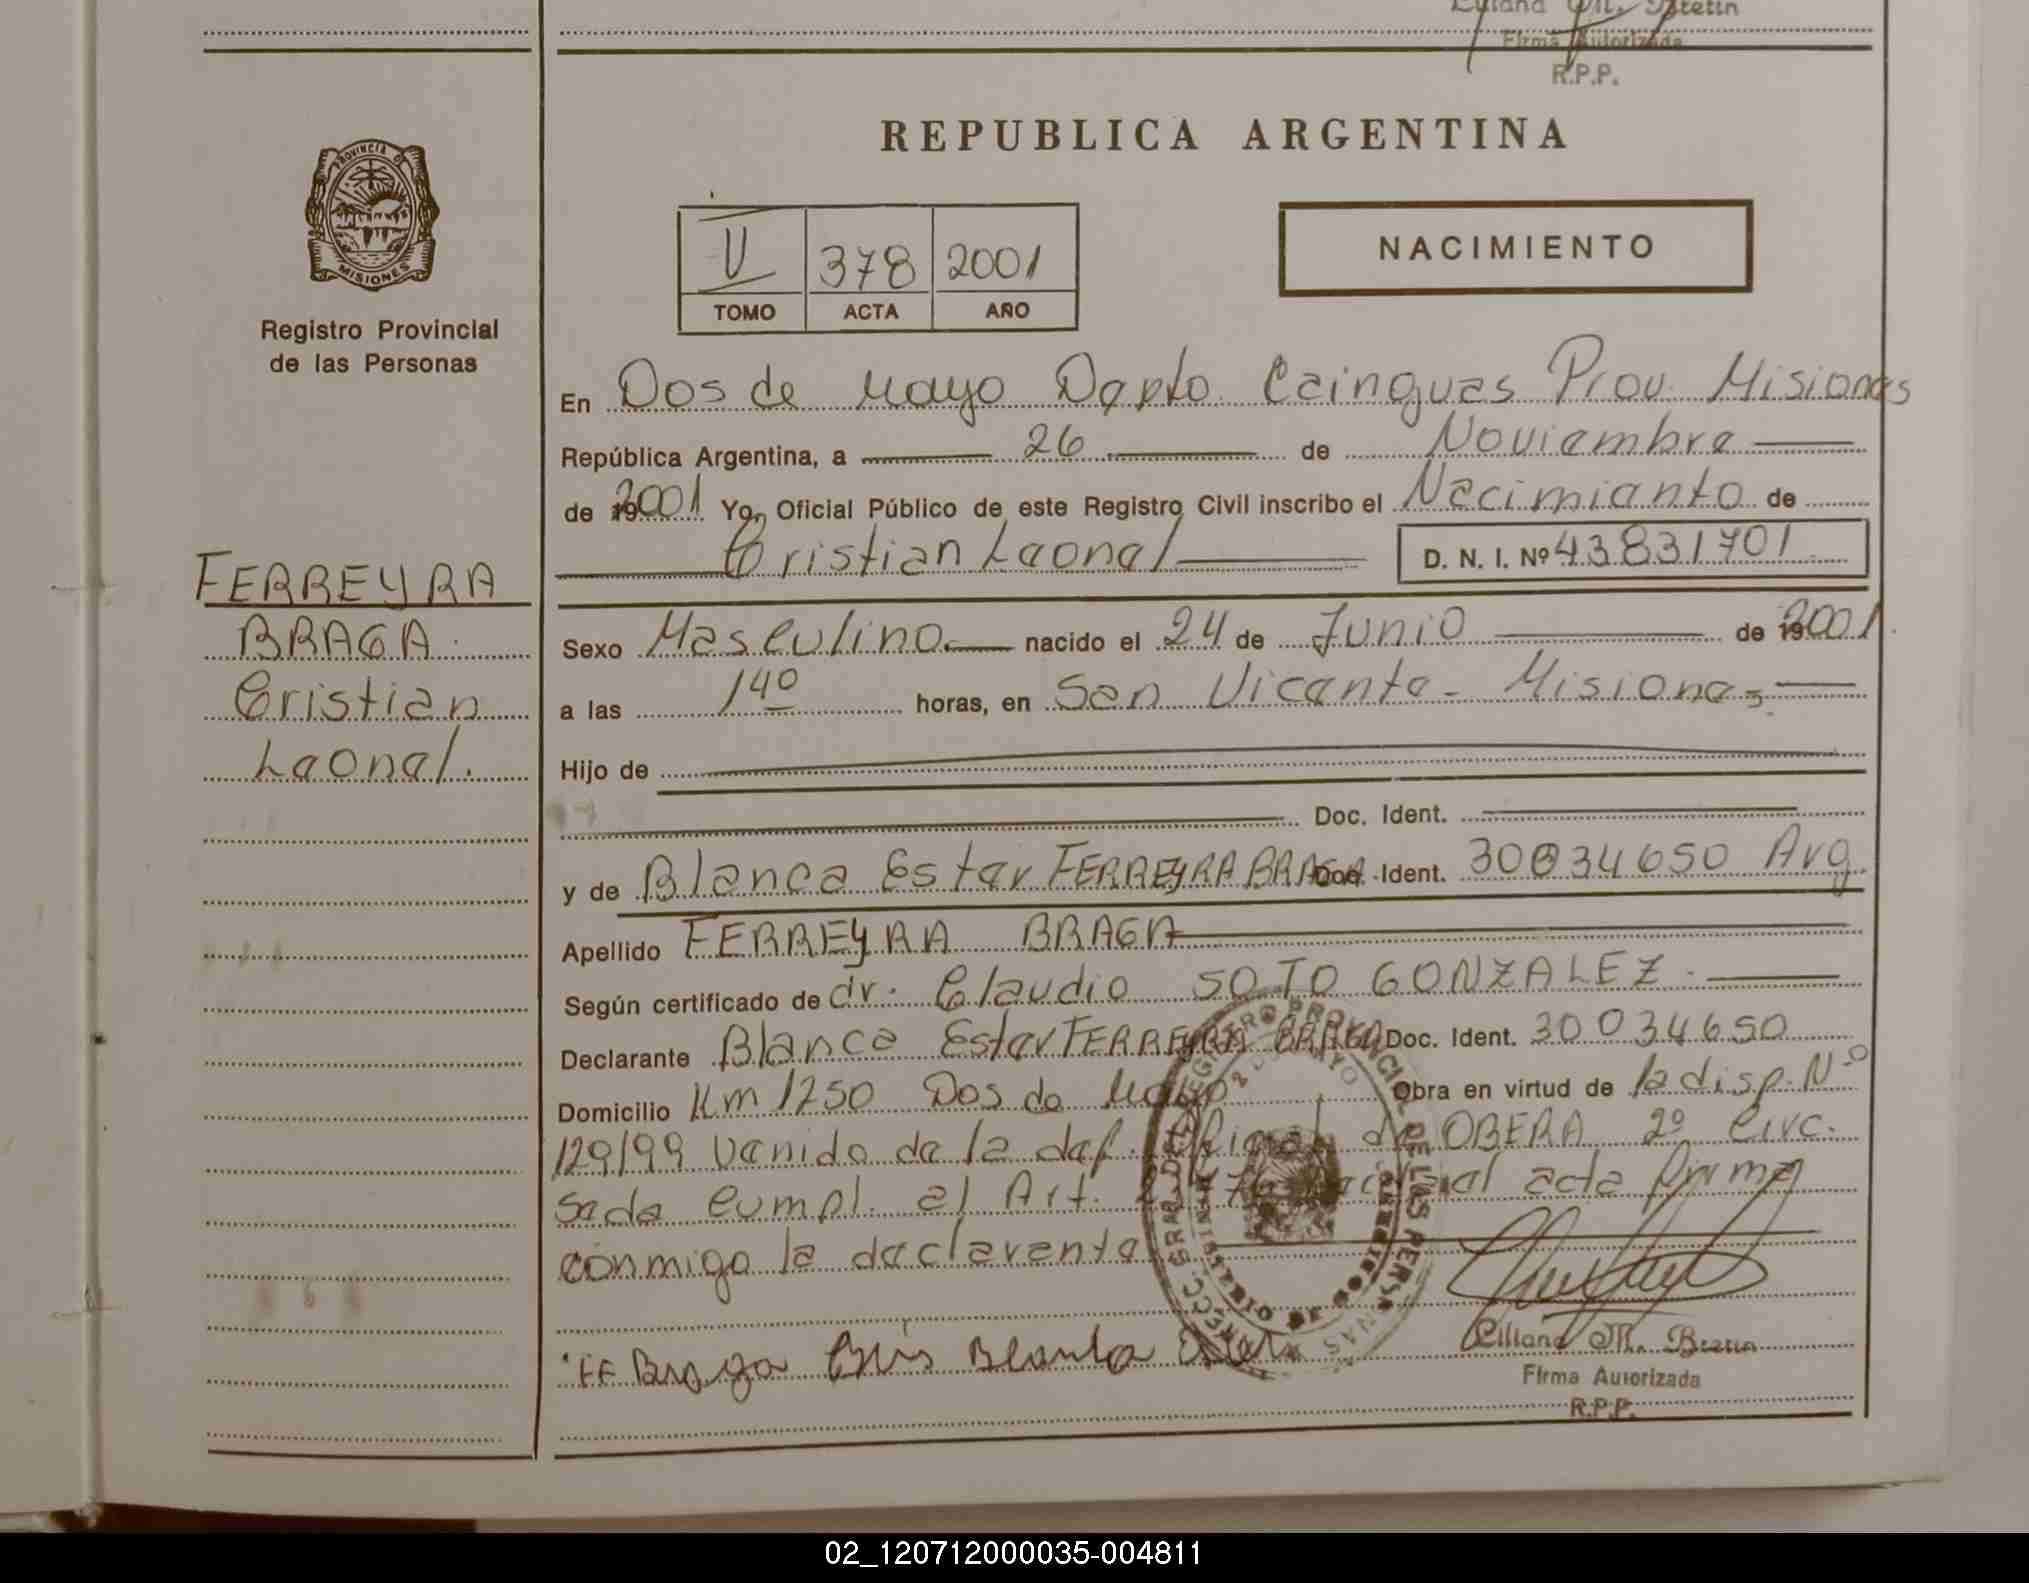 Liliana M. Bretin
Firma Autorizada
R.P.P.
REPUBLICA ARGENTINA
PROVINCIA D
MISIONES
Registro Provincial
de las Personas
378 2001
TOMO ACTA AÑO
NACIMIENTO
En Dos de Mayo Depto Cainguas Prov. Misiones
República Argentina, a 26 de Noviembre
de 2001 Yo, Oficial Público de este Registro Civil inscribo el Nacimiento de
Cristian Leonel D. N. I. Nº 43831701
FERREYRA
BRAGA.
Cristian
Leonel.
Sexo Masculino nacido el 24 de Junio de 2001.
a las 14º horas, en San Vicente - Misiones
Hijo de
Doc. Ident.
y de Blanca Ester FERREYRA BRAGA Doc. Ident. 30034650 Arg.
Apellido FERREYRA BRAGA
Según certificado de dr. Claudio SOTO GONZALEZ.
Declarante Blanca Ester FERREYRA BRAGA Doc. Ident. 30034650
Domicilio Km 1250 Dos de Mayo Obra en virtud de la disp. Nº
129/99 venido de la del. de OBERA 2º Circ.
cumpl. el Art. acta firma
conmigo la declarente
REGISTRO PROVINCIAL DE LAS PERSONAS
MINISTERIO DE GOBIERNO
Braga Blanca
Liliana M. Bretin
Firma Autorizada
R.P.P.
02_120712000035-004811